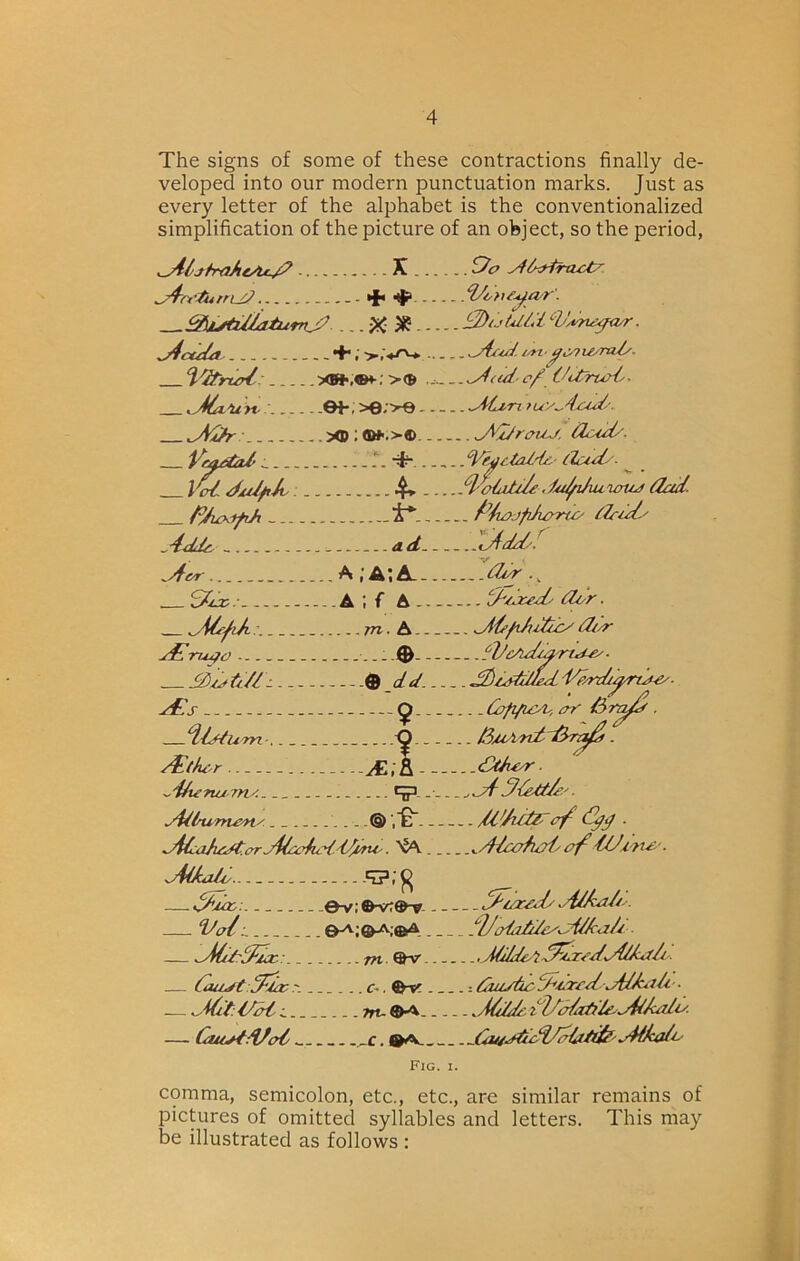 4
The signs of some of these contractions finally de-
veloped into our modern punctuation marks. Just as
every letter of the alphabet is the conventionalized
simplification of the picture of an object, so the period,
X To Abstract.
Vinegar.
Distill'd Vinegar.
Acida Acid in general.
Vitriol: Acid of Vitriol.
Acid.
Nitr: Nitrous Acid.
Vegetal: Vegetable Acid.
Vol. Sulph: Volatile Sulphurious Acid.
Phosph Phosphoric Acid
Adde ad Add.
Aer A; A; A Air.
Fix: A; f A Fixed Air.
Meph: m. A Mephitic Air
Ærugo Verdigrise.
Distill: dd. Distilled Verdigrise.
Æs ♀ Copper, or Brass.
Ustum. Burnt Brass.
Æther Æ; Ether.
A Kettle.
Albumen White of Egg.
Alcohol of Wine.
Alkali
Fix: Fixed Alkali.
Vol: Volatile Alkali.
Mit: Fix: m. Mild Fixed Alkali.
Caust: Fix: c. Caustic Fixed Alkali.
Mit: Vol: m. Mild Volatile Alkali.
Caust: Vol c. Caustic Volatile Alkali
Fig. 1.
comma, semicolon, etc., etc., are similar remains of
pictures of omitted syllables and letters. This may
be illustrated as follows :